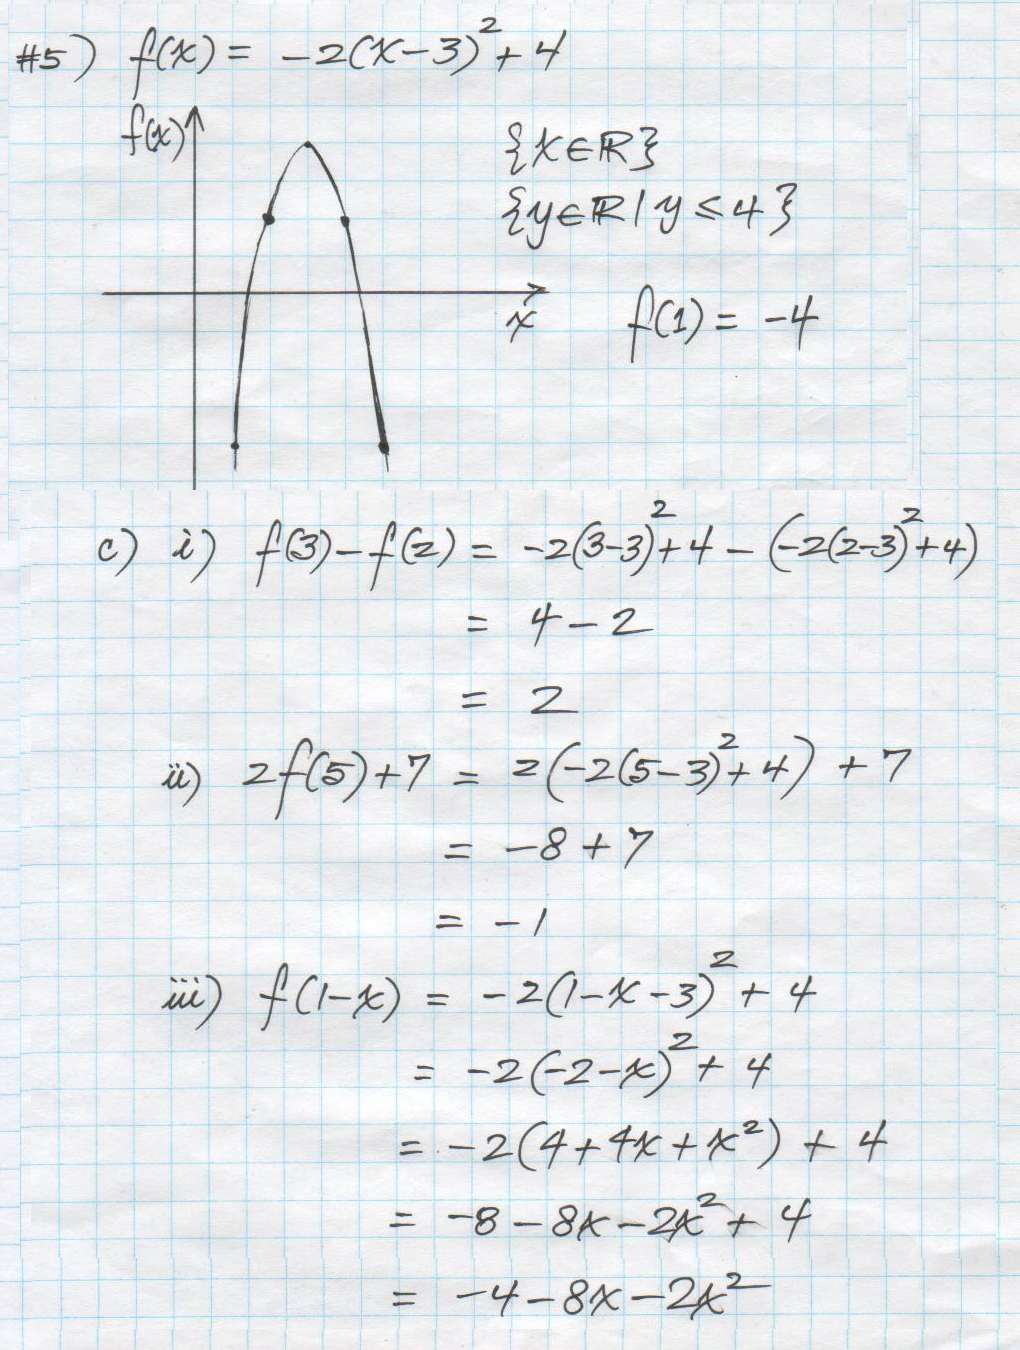 #5) f(x) = -2(x-3)² + 4
f(x)
{x∈ℝ}
{y∈ℝ | y ≤ 4}
x
f(1) = -4
c) i) f(3) - f(2) = -2(3-3)² + 4 - (-2(2-3)² + 4)
= 4 - 2
= 2
ii) 2f(5) + 7 = 2(-2(5-3)² + 4) + 7
= -8 + 7
= -1
iii) f(1-x) = -2(1-x-3)² + 4
= -2(-2-x)² + 4
= -2(4 + 4x + x²) + 4
= -8 - 8x - 2x² + 4
= -4 - 8x - 2x²